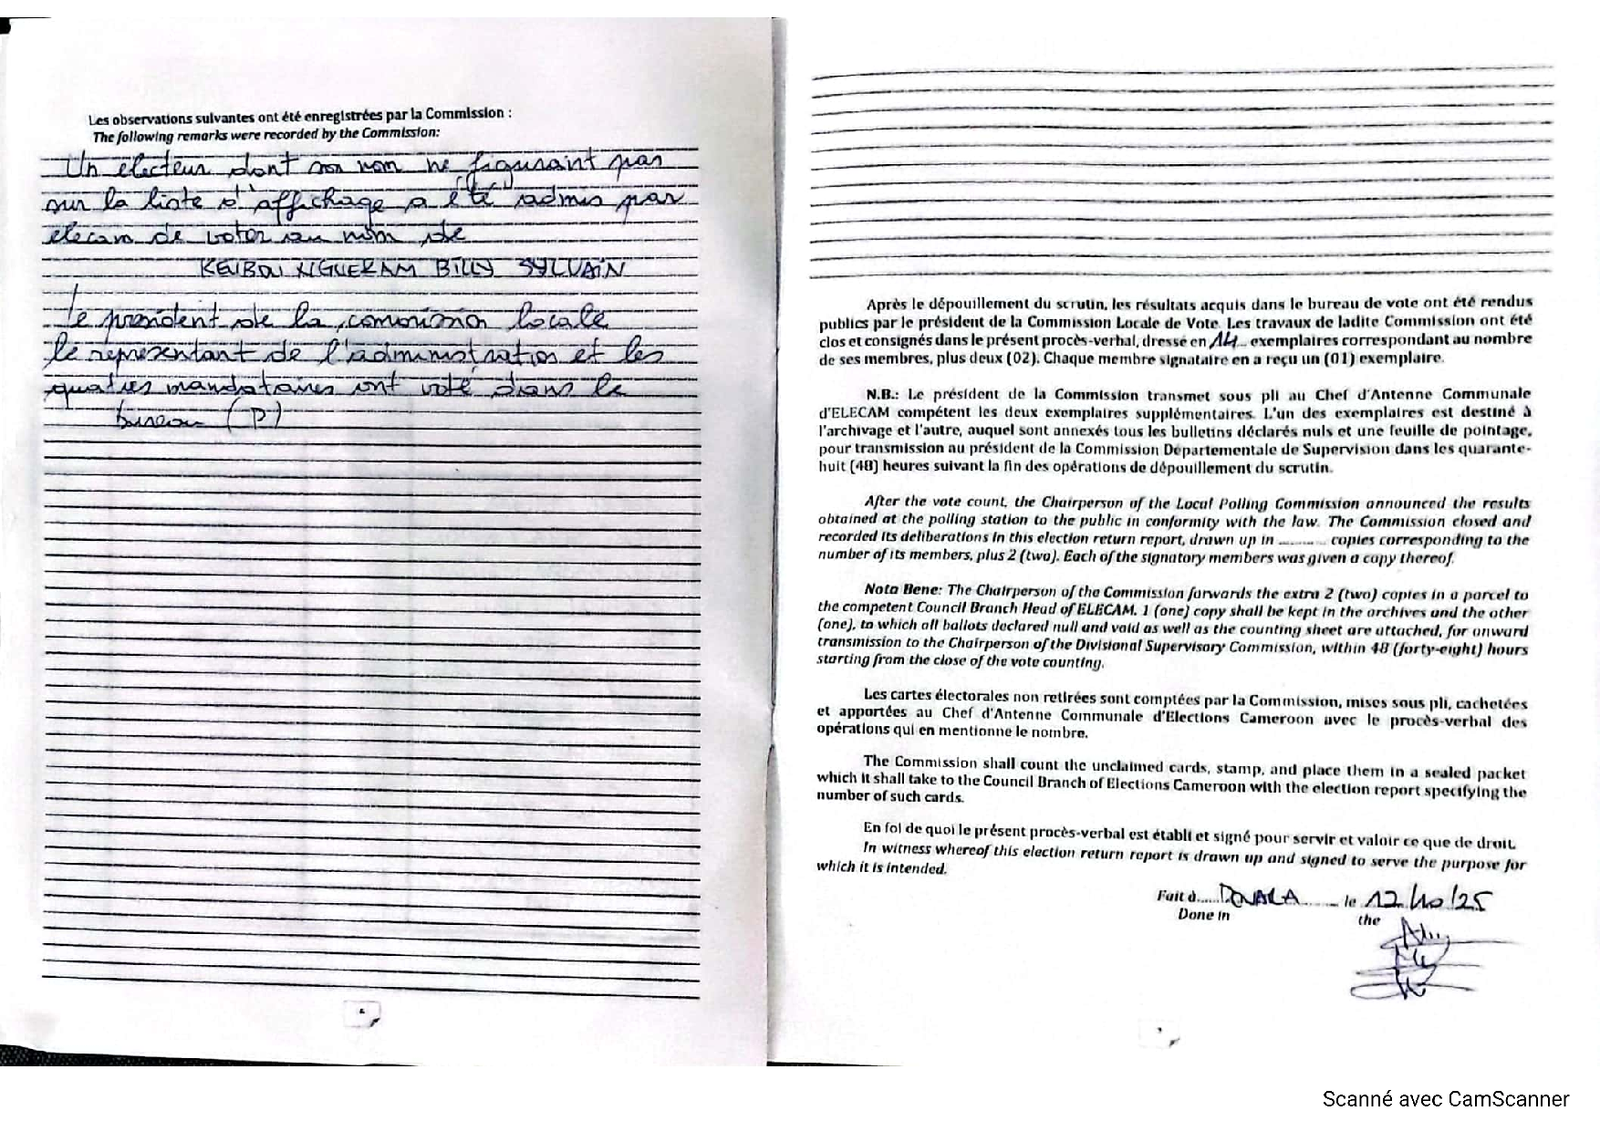 Les observations suivantes ont été enregistrées par la Commission :
The following remarks were recorded by the Commission:
Un electeur dont son nom ne figurant pas
sur la liste d'affichage a été admis par
elecam de voter au nom de
KEUBOU NGUEKAM BILLY SYLVAIN
Le president de la commission locale
le representant de l'administration et les
quatres mandataires ont voté dans le
bureau (P)
Après le dépouillement du scrutin, les résultats acquis dans le bureau de vote ont été rendus
publics par le président de la Commission Locale de Vote. Les travaux de ladite Commission ont été
clos et consignés dans le présent procès-verbal, dressé en 14 exemplaires correspondant au nombre
de ses membres, plus deux (02). Chaque membre signataire en a reçu un (01) exemplaire.
N.B.: Le président de la Commission transmet sous pli au Chef d'Antenne Communale
d'ELECAM compétent les deux exemplaires supplémentaires. L'un des exemplaires est destiné à
l'archivage et l'autre, auquel sont annexés tous les bulletins déclarés nuls et une feuille de pointage,
pour transmission au président de la Commission Départementale de Supervision dans les quarante-
huit (48) heures suivant la fin des opérations de dépouillement du scrutin.
After the vote count, the Chairperson of the Local Polling Commission announced the results
obtained at the polling station to the public in conformity with the law. The Commission closed and
recorded its deliberations in this election return report, drawn up in ........... copies corresponding to the
number of its members, plus 2 (two). Each of the signatory members was given a copy thereof.
Nota Bene: The Chairperson of the Commission forwards the extra 2 (two) copies in a parcel to
the competent Council Branch Head of ELECAM. 1 (one) copy shall be kept in the archives and the other
(one), to which all ballots declared null and void as well as the counting sheet are attached, for onward
transmission to the Chairperson of the Divisional Supervisory Commission, within 48 (forty-eight) hours
starting from the close of the vote counting.
Les cartes électorales non retirées sont comptées par la Commission, mises sous pli, cachetées
et apportées au Chef d'Antenne Communale d'Elections Cameroon avec le procès-verbal des
opérations qui en mentionne le nombre.
The Commission shall count the unclaimed cards, stamp, and place them in a sealed packet
which it shall take to the Council Branch of Elections Cameroon with the election report specifying the
number of such cards.
En foi de quoi le présent procès-verbal est établi et signé pour servir et valoir ce que de droit.
In witness whereof this election return report is drawn up and signed to serve the purpose for
which it is intended.
Fait à......DOUALA........ le 12/10/25
Done in the
Scanné avec CamScanner